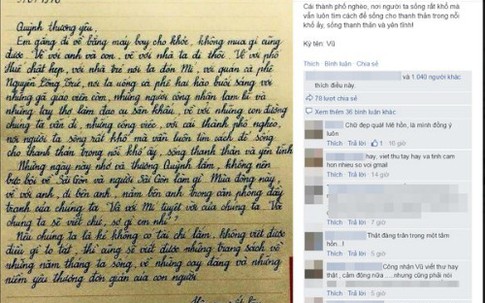 Quỳnh thương yêu,
Em gắng đi về bằng máy bay cho khỏe, không mua gì cũng
được. Về với anh và con, về với nhà ta đi thôi. Về với phố
Huế chật hẹp, với nhà trẻ nơi ta đón Mí, với quán cà phê
Nguyễn Công Trứ, nơi ta uống cà phê hai hào buổi sáng với
những gã giáo viên còm, những người công nhân lam lũ và
những tay thợ làm dao cạo sẵn khâu, về với những con đường
chúng ta vẫn đi, những công việc, với cái thành phố nghèo,
nơi người ta sống rất khổ mà vẫn luôn tìm cách để sống
cho thanh thản trong nỗi khổ ấy, sống thanh thản và yên tĩnh.
Những ngày này nhớ và thương Quỳnh lắm, không nên
bực bội về Sài Gòn và người Sài Gòn làm gì. Mùa đông này,
về với anh, đi bên anh, nằm bên anh trong căn phòng đầy
tranh của chúng ta. Và với Mí tuyệt vời của chúng ta. Và
chúng ta sẽ viết chứ, sợ gì em nhỉ?
Nếu chúng ta là kẻ không có tài chi lắm, không viết được
điều gì to tát, thì cũng sẽ viết được những trang sách về
những năm tháng ta sống, về những cay đắng và những
niềm yêu thương đơn giản của con người.
Cái thành phố nghèo, nơi người ta sống rất khổ mà
vẫn luôn tìm cách để sống cho thanh thản trong nỗi
khổ ấy, sống thanh thản và yên tĩnh!
Ký tên: Vũ
Thích · Bình luận · Chia sẻ
và 1.040 người khác
thích điều này.
78 lượt chia sẻ
Xem thêm 36 bình luận
Chữ đẹp quá! Mê hồn, là mình đồng ý
luôn
Thích · Trả lời · 1 · 14 giờ
hay, viet thu tay hay va tinh cam
hon nhieu so voi gmail
Thích · Trả lời · 1 · 14 giờ
Thích · Trả lời · 7 giờ
Thật đáng trân trọng một tâm
hồn..!
Thích · Trả lời · 1 · 7 giờ
Công nhận Vũ viết thư hay
thật, cảm động nữa ....nhưng cũng phải nói